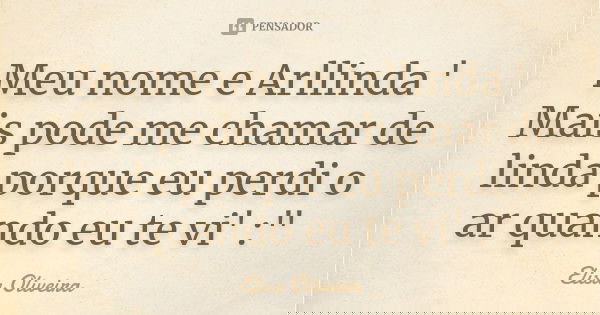 PENSADOR
Meu nome e Arlllinda '
Mais pode me chamar de
linda porque eu perdi o
ar quando eu te vi" :"
Elisa Oliveira